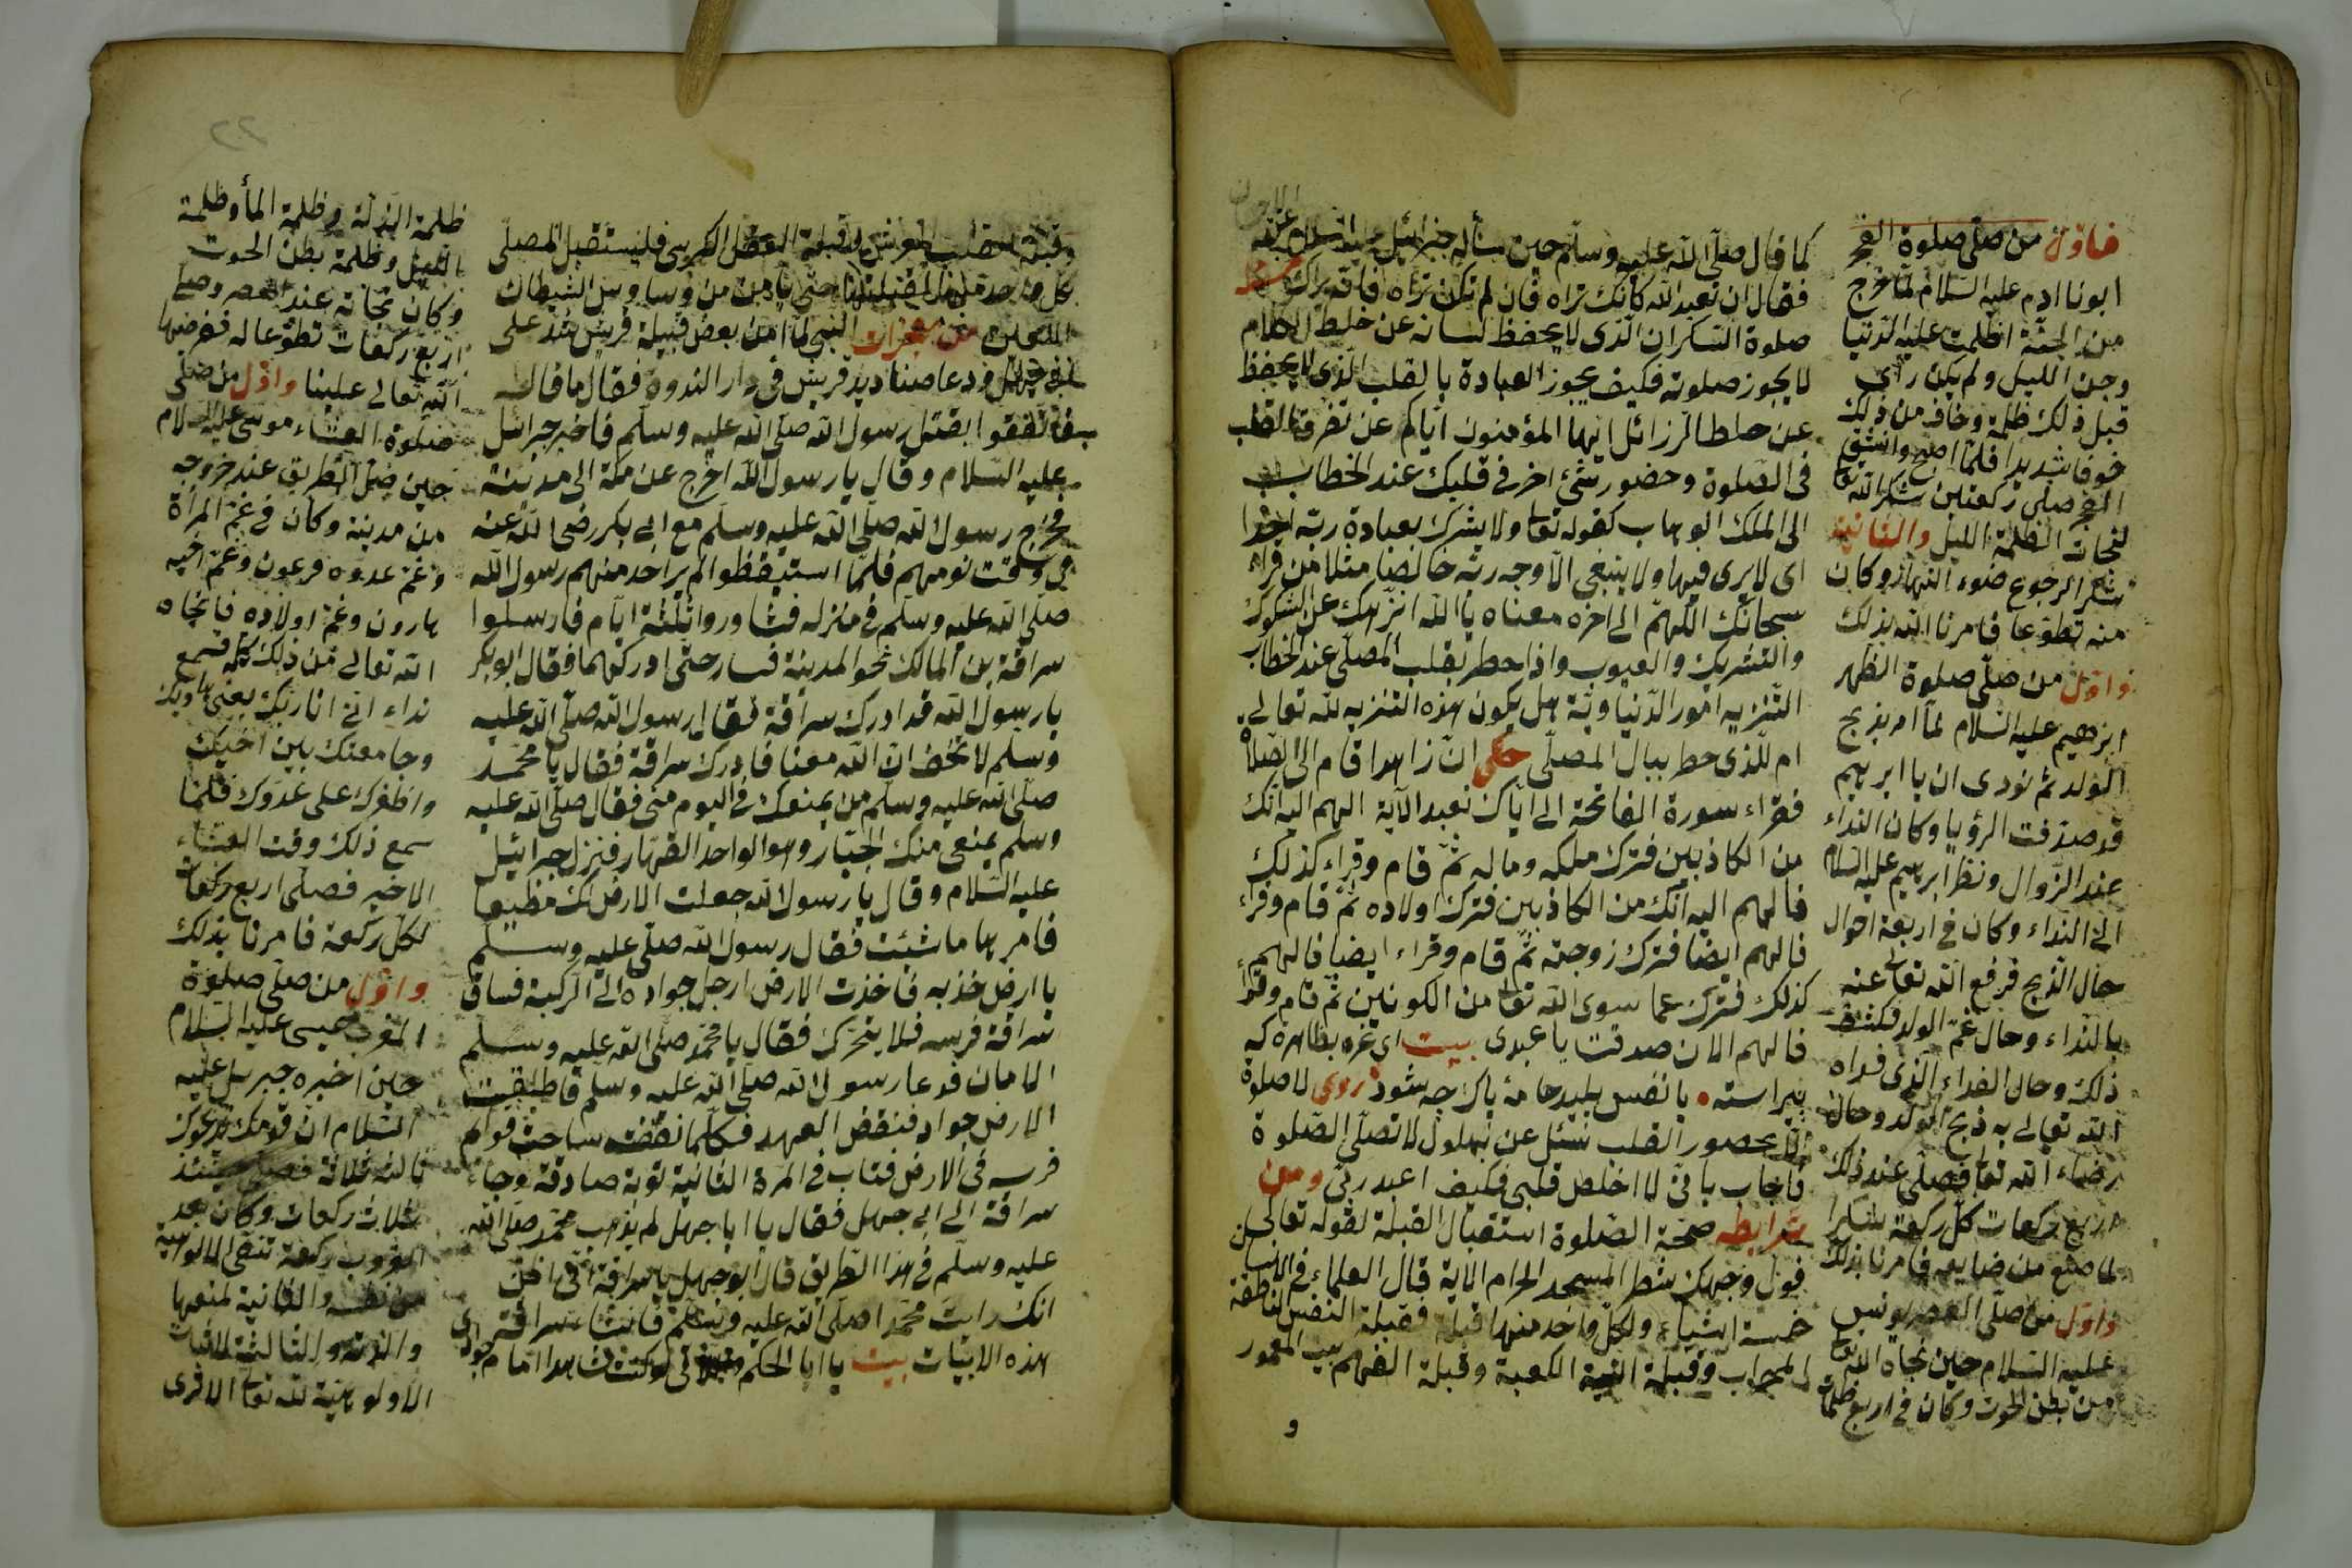 كما قال صلّى الله عليه وسلّم حين سأله جبرائيل عليه السلام عنه
فقال ان تعبد الله كانك تراه فان لم تكن تراه فانه يراك
صلوة السكران الذى لا يحفظ لسانه عن خلط الكلام
لا يجوز صلوته فكيف يجوز العبادة بالقلب الذى لا يحفظ
عن خلط الرزائل ايها المؤمنون اياكم عن تفرقة القلب
فى الصلوة وحضور شئ اخر فى قلبك عند الخطاب
الى الملك الوهاب كقوله تعا ولا يشرك بعبادة ربه احدا
اى لا يرى فيها ولا ينبغى الا وجه ربه خالصا مثلا من قراء
سبحانك اللهم الى اخره معناه يا الله انزهك عن الشكوك
والتشريك والعيوب واذا خطر بقلب المصلى عند الخطاب
التنزيه امور الدنيا وية هل يكون هذه التنزيه لله تعالى
ام للذى خطر ببال المصلى حكى ان زاهدا قام الى الصلاة
فقراء سورة الفاتحة الى اياك نعبد الآية الهم اليه انك
من الكاذبين فترك ملكه وماله ثم قام وقراء كذلك
فالهم اليه انك من الكاذبين فترك اولاده ثم قام وقراء
فالهم ايضا فترك زوجته ثم قام وقراء ايضا فالهم
كذلك فترك عما سوى الله تعا من الكونين ثم قام وقراء
فالهم الان صدقت يا عبدى بيت اى غره بظاهره كه
بيراسته • با نفس پليد جامۀ پاك چه شود روى لا صلوة
الا بحضور القلب سئل عن بهلول لا تصلى الصلوة
فاجاب بانى لا اخلص قلبى فكيف اعبد ربى ومن
شرابط صحة الصلوة استقبال القبلة لقوله تعالى
فول وجهك شطر المسجد الحرام الاية قال العلماء فى الانسان
خمسة اشياء ولكل واحد منها قبلة فقبلة النفس الناطقة
المحراب وقبلة النية الكعبة وقبلة الفهم بيت المعمور
و
فاول من صلى صلوة الفجر
ابونا ادم عليه السلام لما خرج
من الجنة اظلمت عليه الدنيا
وجن الليل ولم يكن رأى
قبل ذلك ظلمة وخاف من ذلك
خوفا شديدا فلما اصبح وانشق
الفجر صلى ركعتين شكر الله تعا
لنجات الظلمة الليل والثانية
شكر الرجوع ضوء النهار وكان
منه تطوعا فامرنا الله بذلك
واول من صلى صلوة الظهر
ابرهيم عليه السلام لما امر بذبح
الولد ثم نودى ان يا ابرهيم
قد صدقت الرؤيا وكان النداء
عند الزوال ونظر ابرهيم عليه السلام
الى النداء وكان فى اربعة احوال
حال الذبح فرفع الله تعالى عنه
بالنداء وحال غم الولد فكشف
ذلك وحال الفداء الذى فداه
الله تعالى به ذبح الولد وحال
رضاء الله تعا فصلى عند ذلك
اربع ركعات كل ركعة شكرا
لما صنع من صنايعه فامرنا بذلك
واول من صلى العصر يونس
عليه السلام حين نجاه الله تعا
من بطن الحوت وكان فى اربع ظلمات
٢٢
وقبلة القلب العرش وقبلة العقل الكرسى فليستقبل المصلى
النبى لما امن بعض قبيلة قريش شذ على
ودعا صناديد قريش فى دار الندوة فقال ما قال
فاتفقوا بقتل رسول الله صلى الله عليه وسلم فاخبر جبرائيل
عليه السلام وقال يا رسول الله اخرج عن مكة الى مدينة
فخرج رسول الله صلى الله عليه وسلم مع ابى بكر رضى الله عنه
فى وقت نومهم فلما استيقظوا لم ير احد منهم رسول الله
صلى الله عليه وسلم فى منزله فشاوروا ثلثة ايام فارسلوا
سراقة بن المالك نحو المدينة فسار حتى ادركهما فقال ابو بكر
يا رسول الله قد ادرك سراقة فقال رسول الله صلى الله عليه
وسلم لا تخف ان الله معنا فادرك سراقة فقال يا محمد
صلى الله عليه وسلم من يمنعك فى اليوم منى فقال صلى الله عليه
وسلم يمنعى منك الجبار وهو الواحد القهار فنزل جبرائيل
عليه السلام وقال يا رسول الله جعلت الارض لك مطيعا
فامرها ما شئت فقال رسول الله صلى عليه وسلم
يا ارض خذيه فاخذت الارض ارجل جواده الى الركبة فساق
سراقة فرسه فلا يتحرك فقال يا محمد صلى الله عليه وسلم
الامان فدعا رسول الله صلى الله عليه وسلم فاطلقت
الارض جواد فنقض العهد فكلما نقضت ساحت قوام
فرسه فى الارض فتاب فى المرة الثانية توبة صادقة وجاء
سراقة الى ابى جهل فقال يا ابا جهل لم يذهب محمد صلى الله
عليه وسلم فى هذا الطريق قال ابو جهل يا سراقة انى اظن
انك رايت محمدا صلى الله عليه وسلم فانشاء سراقة
هذه الابيات بيت يا ابا الحكم لو كنت شاهدا امام جوادى
ظلمة الذلة وظلمة الماء وظلمة
بالليل وظلمة بطن الحوت
وكان نجاته عند العصر وصلى
اربع ركعات تطوعا له ففرضها
الله تعالى علينا واول من صلى
صلوة العشاء موسى عليه السلام
حين ضل الطريق عند خروجه
من مدينة وكان فى غم المرأة
وغم عدوه فرعون وغم اخيه
هارون وغم اولاده فانجاه
الله تعالى من ذلك كله فسمع
نداء انى انا ربك يعنى هاديك
وجامعنك بين اخيك
واظفرك على عدوك فلما
سمع ذلك وقت العشاء
الاخير فصلى اربع ركعات
لكل ركعة فامرنا بذلك
واول من صلى صلوة
المغرب عيسى عليه السلام
حين اخبره جبريل عليه
السلام ان قومك يدعوك
ثالث ثلاثة فصلى حينئذ
ثلاث ركعات وكان بعد
الغروب ركعة تنفى الالوهية
من نفسه والثانية لمنعها
والدته والثالثة لاثبات
الالوهية لله تعا الاقرى